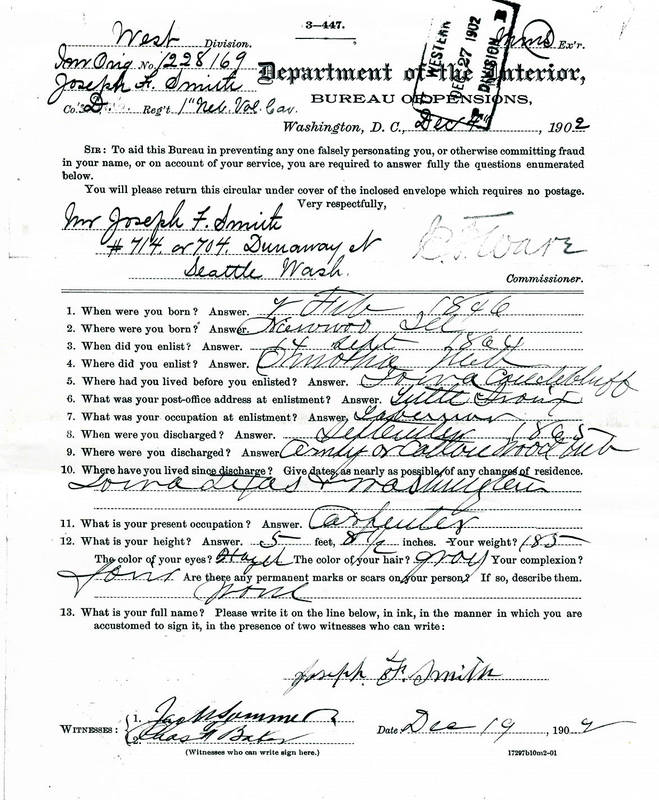 3—447.
West Division.
Inv. Orig. No. 1228169
Joseph F. Smith
Co. D. Reg't 1" Neb. Vol. Cav.
Ex'r.
WESTERN
DEC 27 1902
DIVISION
Department of the Interior,
BUREAU OF PENSIONS,
Washington, D. C., Dec 4", 1902
SIR: To aid this Bureau in preventing any one falsely personating you, or otherwise committing fraud
in your name, or on account of your service, you are required to answer fully the questions enumerated
below.
You will please return this circular under cover of the inclosed envelope which requires no postage.
Very respectfully,
Mr Joseph F. Smith
# 714. or 704. Dunaway st
Seattle Wash.
Ware
Commissioner.
1. When were you born? Answer. 7 Feb 1846
2. Where were you born? Answer. Ill
3. When did you enlist? Answer. 14 Sept 1864
4. Where did you enlist? Answer. Omaha Neb
5. Where had you lived before you enlisted? Answer. Iowa
6. What was your post-office address at enlistment? Answer.
7. What was your occupation at enlistment? Answer,
8. When were you discharged? Answer. September 1865
9. Where were you discharged? Answer Cottonwood Neb
10. Where have you lived since discharge? Give dates, as nearly as possible, of any changes of residence.
Iowa Texas + Washington
11. What is your present occupation? Answer. Carpenter
12. What is your height? Answer. 5 feet, 8 1/2 inches. Your weight? 185
The color of your eyes? Hazel The color of your hair? gray Your complexion?
Are there any permanent marks or scars on your person? If so, describe them.
None
13. What is your full name? Please write it on the line below, in ink, in the manner in which you are
accustomed to sign it, in the presence of two witnesses who can write:
Joseph. F. Smith
WITNESSES:
1. Sommer
2. Chas Baker
(Witnesses who can write sign here.)
Date Dec 19, 1902
17297b10m2-01